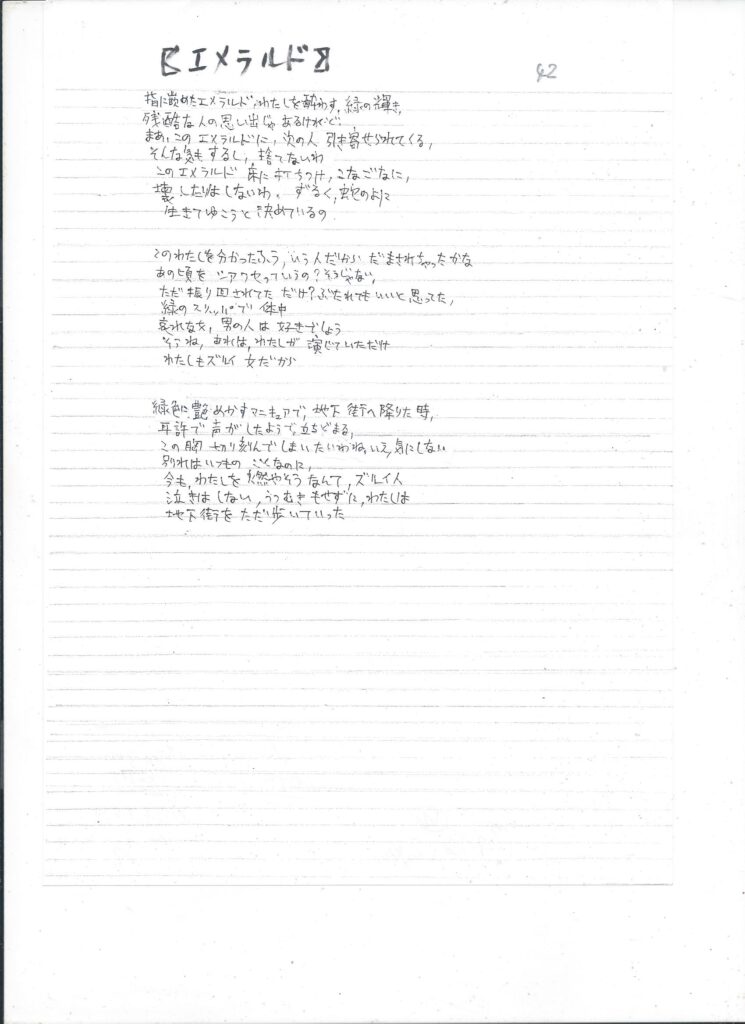 【エメラルド】
42
指に嵌めたエメラルド、わたしを酔わす、緑の輝き、
残酷な人の思い出じゃあるけれど、
まあ、このエメラルドに、次の人 引き寄せられてくる、
そんな気もするし、捨てないわ
このエメラルド 床に打ちつけ、こなごなに、
壊したりはしないわ。ずるく、蛇のように
生きてゆこうと決めているの
このわたしを分かったふう、いう人だから だまされちゃったかな
あの頃を シアワセっていうの?そうじゃない、
ただ振り回されてた だけ?ぶたれてもいいと思ってた、
緑のスリッパで 体中
哀れな女、男の人は 好きでしょう
そうね、あれは、わたしが 演じていただけ
わたしもズルイ 女だから
緑色に艶めかすマニキュアで、地下街へ降りた時、
耳許で 声がしたようで、立ちどまる、
この胸 切り刻んでしまいたいわね、いえ、気にしない
別れはいつもの ごくなのに、
今も、わたしを 燃やそうなんて、ズルイ人
泣きはしない、うつむきもせずに、わたしは
地下街を ただ歩いていった